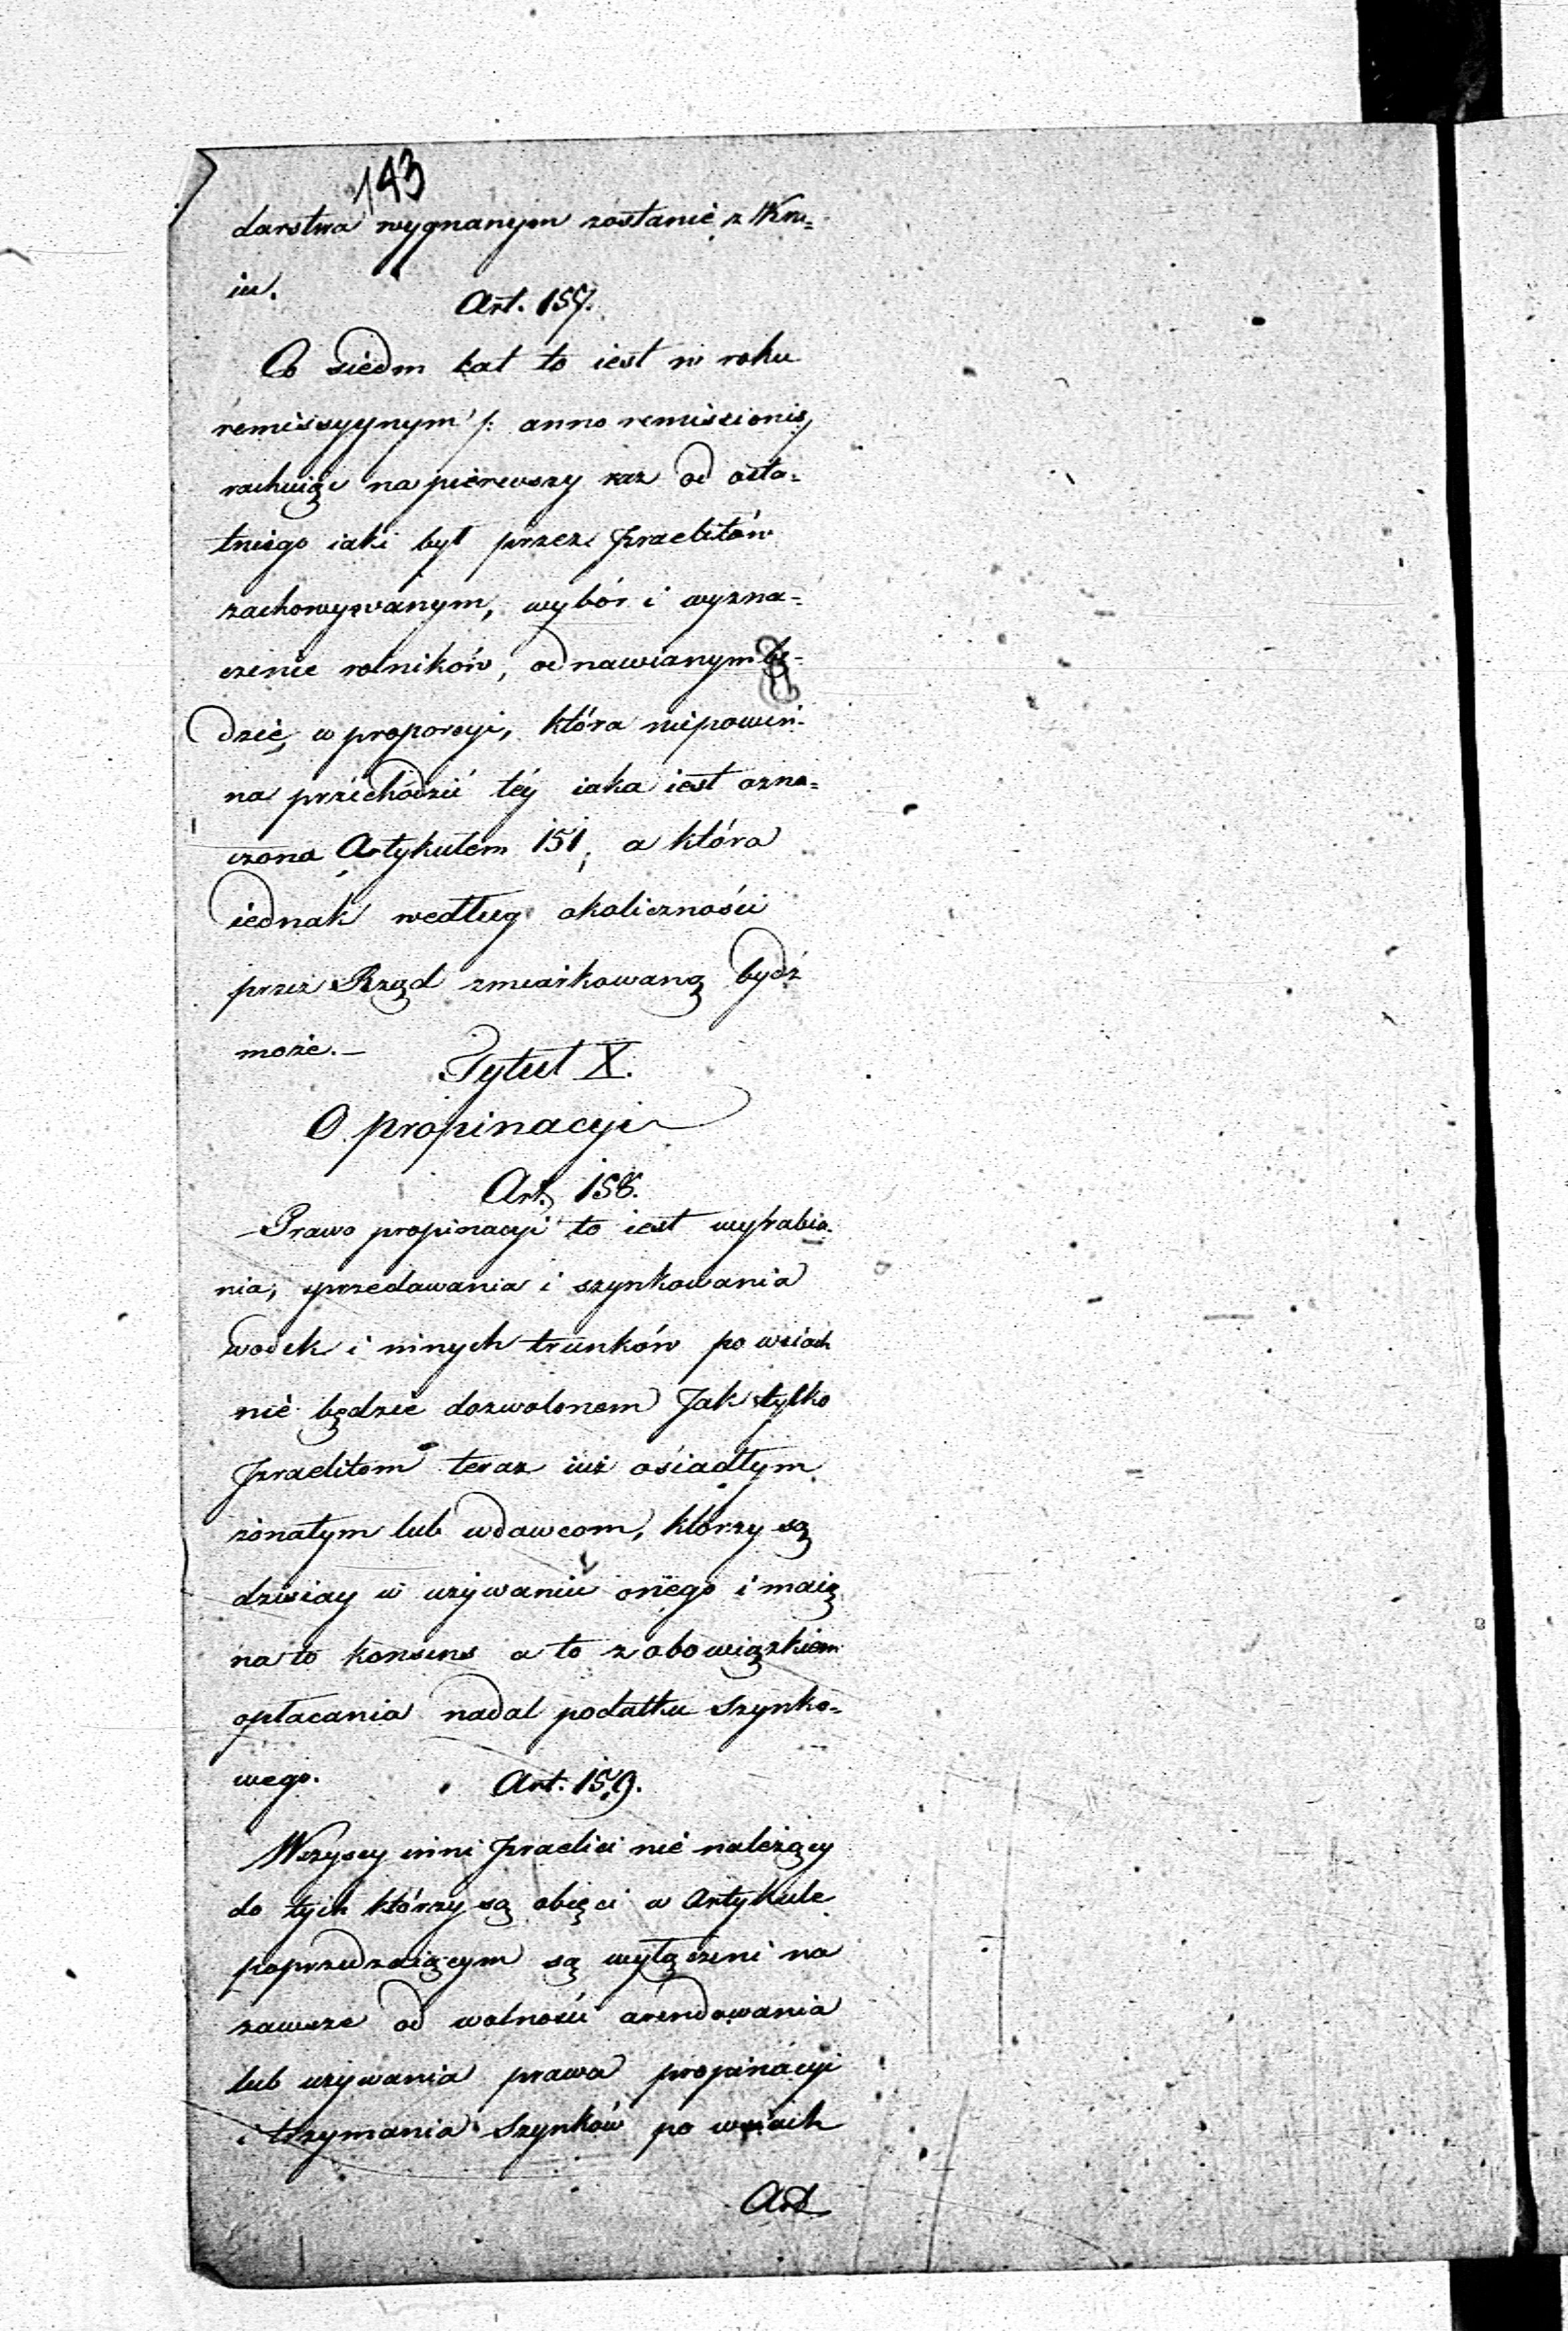 143
darstwa wygnanym zostanie z Kra=
iu.
Art. 157.
Co siedm lat to iest w roku
remissyynym /: anno remissionis/
rachuiąc na pierwszy raz od osta=
tniego iaki był przez Izraelitów
zachowywanym, wybór i wyzna=
czenie rolników, odnawianym bę=
dzie, w proporcyi, która niepowin=
na przechodzić téy iaka iest ozna=
czona Artykułem 151, a która
iednak według okoliczności
przez Rząd zmiarkowaną bydź
może.—
Tytuł X.
O propinacyi
Art. 158.
Prawo propinacyi to iest wyrabia=
nia, sprzedawania i szynkowania
wodek i innych trunków po wsiach
nie będzie dozwolonem Jak tylko
Izraelitom teraz iuż osiadłym
żonatym lub wdowcom, którzy są
dzisiay w używaniu onego i maią
na to konsens a to z obowiązkiem
opłacania nadal podatku Szynko=
wego.
Art. 159.
Wszyscy inni Izraelici nie należący
do tych którzy są obięci w Artykule
poprzedzaiącym są wyłączeni na
zawsze od wolności arendowania
lub używania prawa propinacyi
i trzymania Szynków po wsiach
Art